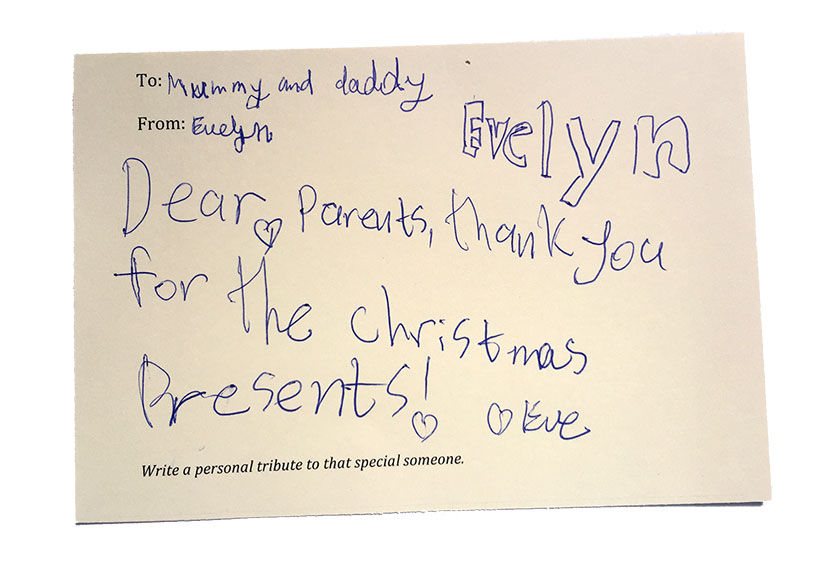 To: Mummy and daddy
From: Evelyn
Evelyn
Dear Parents, thank you
for the christmas
Presents!
Eve
Write a personal tribute to that special someone.